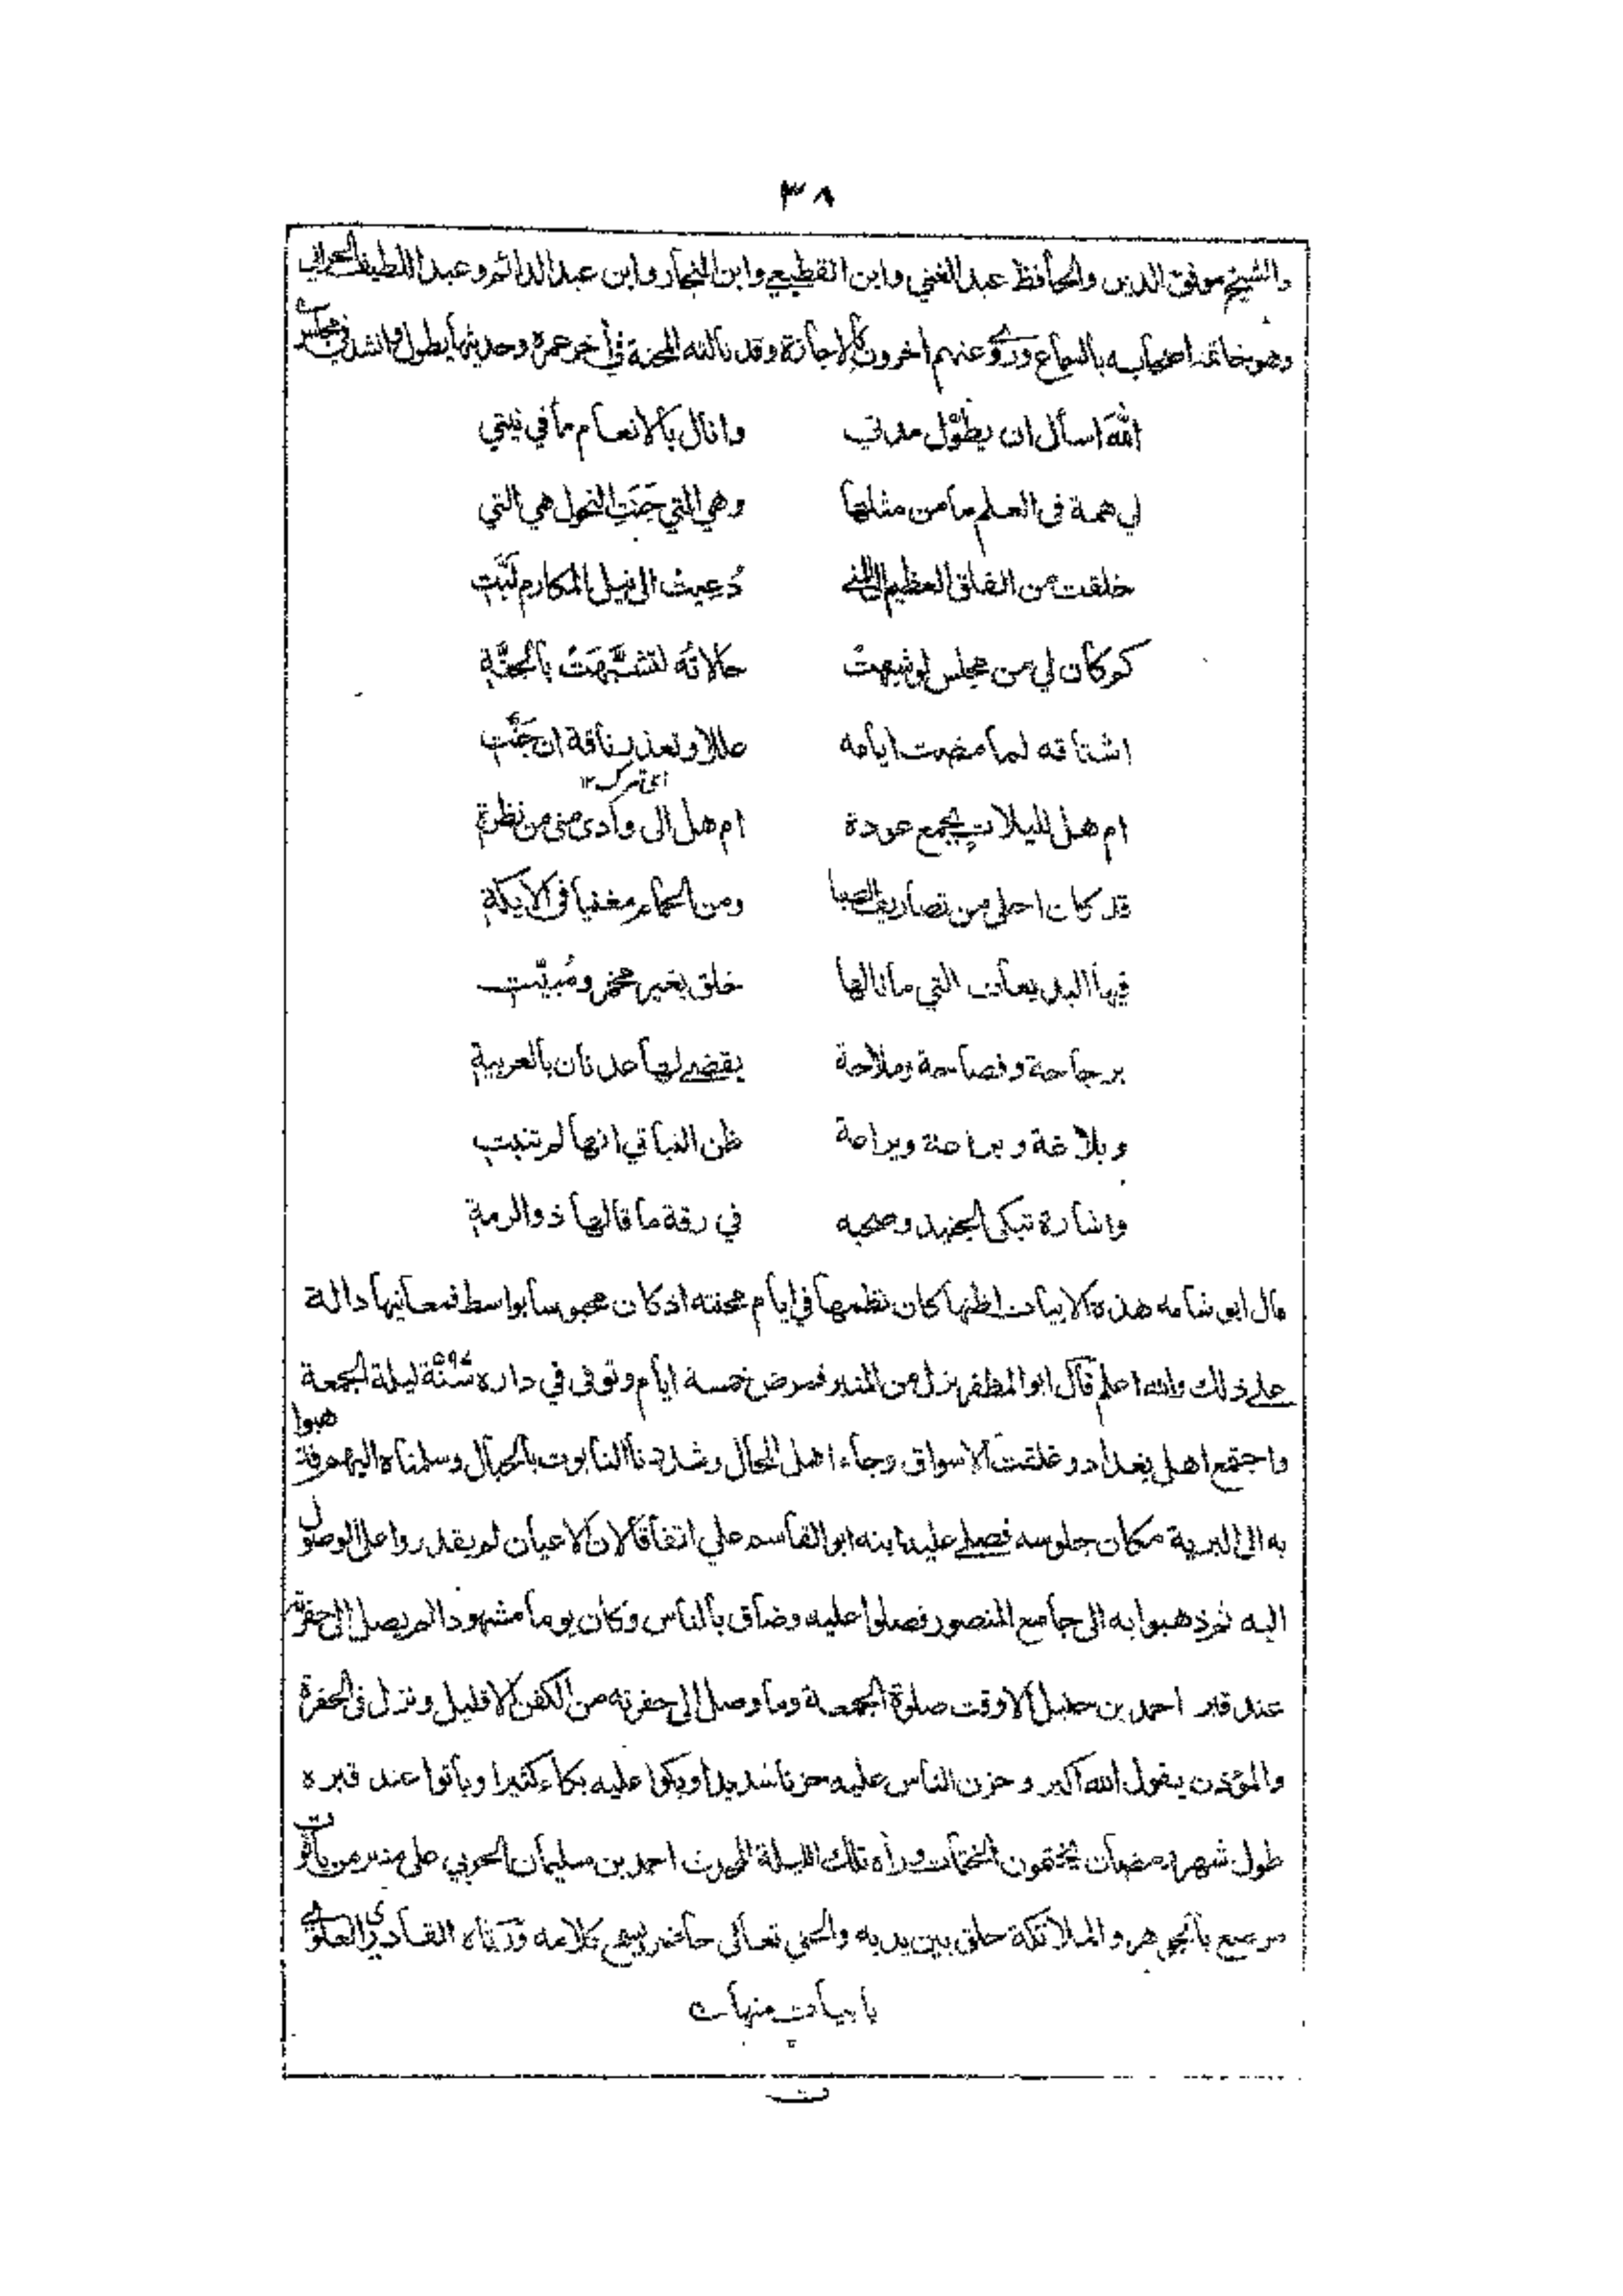 ٣٨
والشيخ موفق الدين والحافظ عبد الغني وابن القطيعي وابن النجار وابن عبد الدائم وعبد اللطيف الحراني
وهو خاتمة اصحابه بالسماع وروى عنهم اخرون بالاجازة وقد نالته المحنة في أخر عمره وحديثها يطول وانشد في مجلس
الله اسأل ان يطوّل مدتي وانال بالانعام ما في نيتي
لي همة في العلم ما من مثلها وهي التي جَنَتِ النحول هي التي
خلقت من الفلق العظيم الى المنى دُعِيتْ الى نيل المكارم لَبَّتِ
كم كان لي من مجلس لو شبهت حالاتُه لتشبَّهَتْ بالجنَّةِ
اشتاقه لما مضت ايامه عللا وتعذر ناقة ان جَنَّتِ
ام هل لليلاتٍ بجمع عودة ام هل الى وادى منى من نظرة
قد كان احلى من تصاريف الصبا ومن الحمام مغنيا في الايكة
فيها البديهات التي ما نالها خلق بغير مخمر ومُبيَّت
برجاحة وفصاحة وملاحة يقضى لها عدنان بالعربية
وبلاغة وبراعة ويراعة ظن النباتي انها لم تنبت
واشارة تبكى الجنيد وصحبه في رقة ما قالها ذو الرمة
قال ابو شامه هذه الابيات اظنها كان نظمها في ايام محنته اذ كان محبوسا بواسط فمعانيها دالة
على ذلك والله اعلم قال ابو المظفر نزل من المنبر فمرض خمسة ايام وتوفى في داره سنة ٥٩٧ ليلة الجمعة
واجتمع اهل بغداد وغلقت الاسواق وجاء اهل المحال وشددنا التابوت بالحبال وسلمناه اليهم فذهبوا
به الى البرية مكان جلوسه فصلى عليه ابنه ابو القاسم علي اتفاقا لان الاعيان لم يقدروا على الوصول
اليه ثم ذهبوا به الى جامع المنصور فصلوا عليه وضاق بالناس وكان يوما مشهودا لم يصل الى حفرته
عند قبر احمد بن حنبل الا وقت صلوة الجمعة وما وصل الى حفرته من الكفن الا قليل ونزل في الحفرة
والمؤذن يقول الله اكبر وحزن الناس عليه حزنا شديدا وبكوا عليه بكاء كثيرا وباتوا عند قبره
طول شهر رمضان يختمون الختمات ورأه تلك الليلة المحدث احمد بن سليمان الحربي على منبر من ياقوت
مرصع بالجوهر والملائكة حلق بين يديه والحق تعالى حاضر يسمع كلامه ورثاه القادري العلوي
بابيات منها